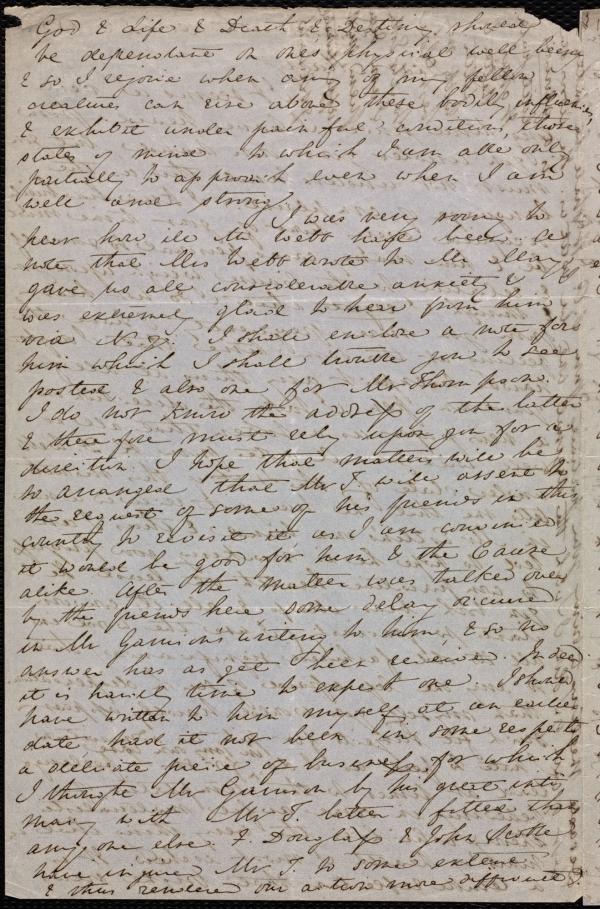 God & Life & Death & Destiny should
be dependant on ones physical well being
& so I rejoice when any of my fellow
creatures can rise above these bodily influences
& exhibit under painful conditions, those
states of mind to which I am able only
partially to approach even when I am
well and strong.
I was very sorry to
hear how ill Mr Webb has been. A
note that Mrs Webb wrote to Mr May
gave us all considerable anxiety &
was extremely glad to hear from him
via N.Y. I shall enclose a note for
him which I shall trouble you to see
posted & also one for Mr Thompson.
I do not know the address of the latter
& therefore must rely upon you for a
direction. I hope that matters will be
so arranged that Mr T. will assent to
the request of some of his friends in this
country to revisit it as I am convinced
it would be good for him & the Cause
alike. After the matter was talked over
by the friends here, some delay occurred
in Mr Garrison's writing to him, & so no
answer has as yet been received. Indeed
it is hardly time to expect one. I should
have written to him myself at an earlier
date, had it not been in some respects
a delicate piece of business for which
I thought Mr Garrison by his great inti-
macy with Mr T. better fitted than
any one else. F Douglass & John Scoble
have injured Mr T. to some extent
& thus rendered our action more difficult.